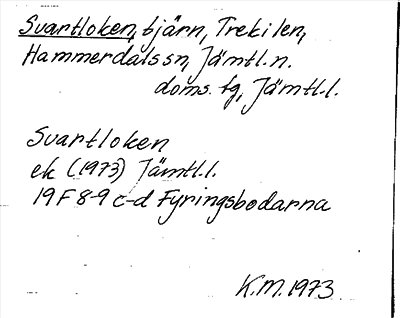 Svartloken, tjärn, Trekilen,
Hammerdals sn, Jämtl.n.
doms. fg, Jämtl.l.
Svartloken
ek (1973) Jämtl.l.
19F 8-9 c-d Fyringsbodarna
K.M. 1973